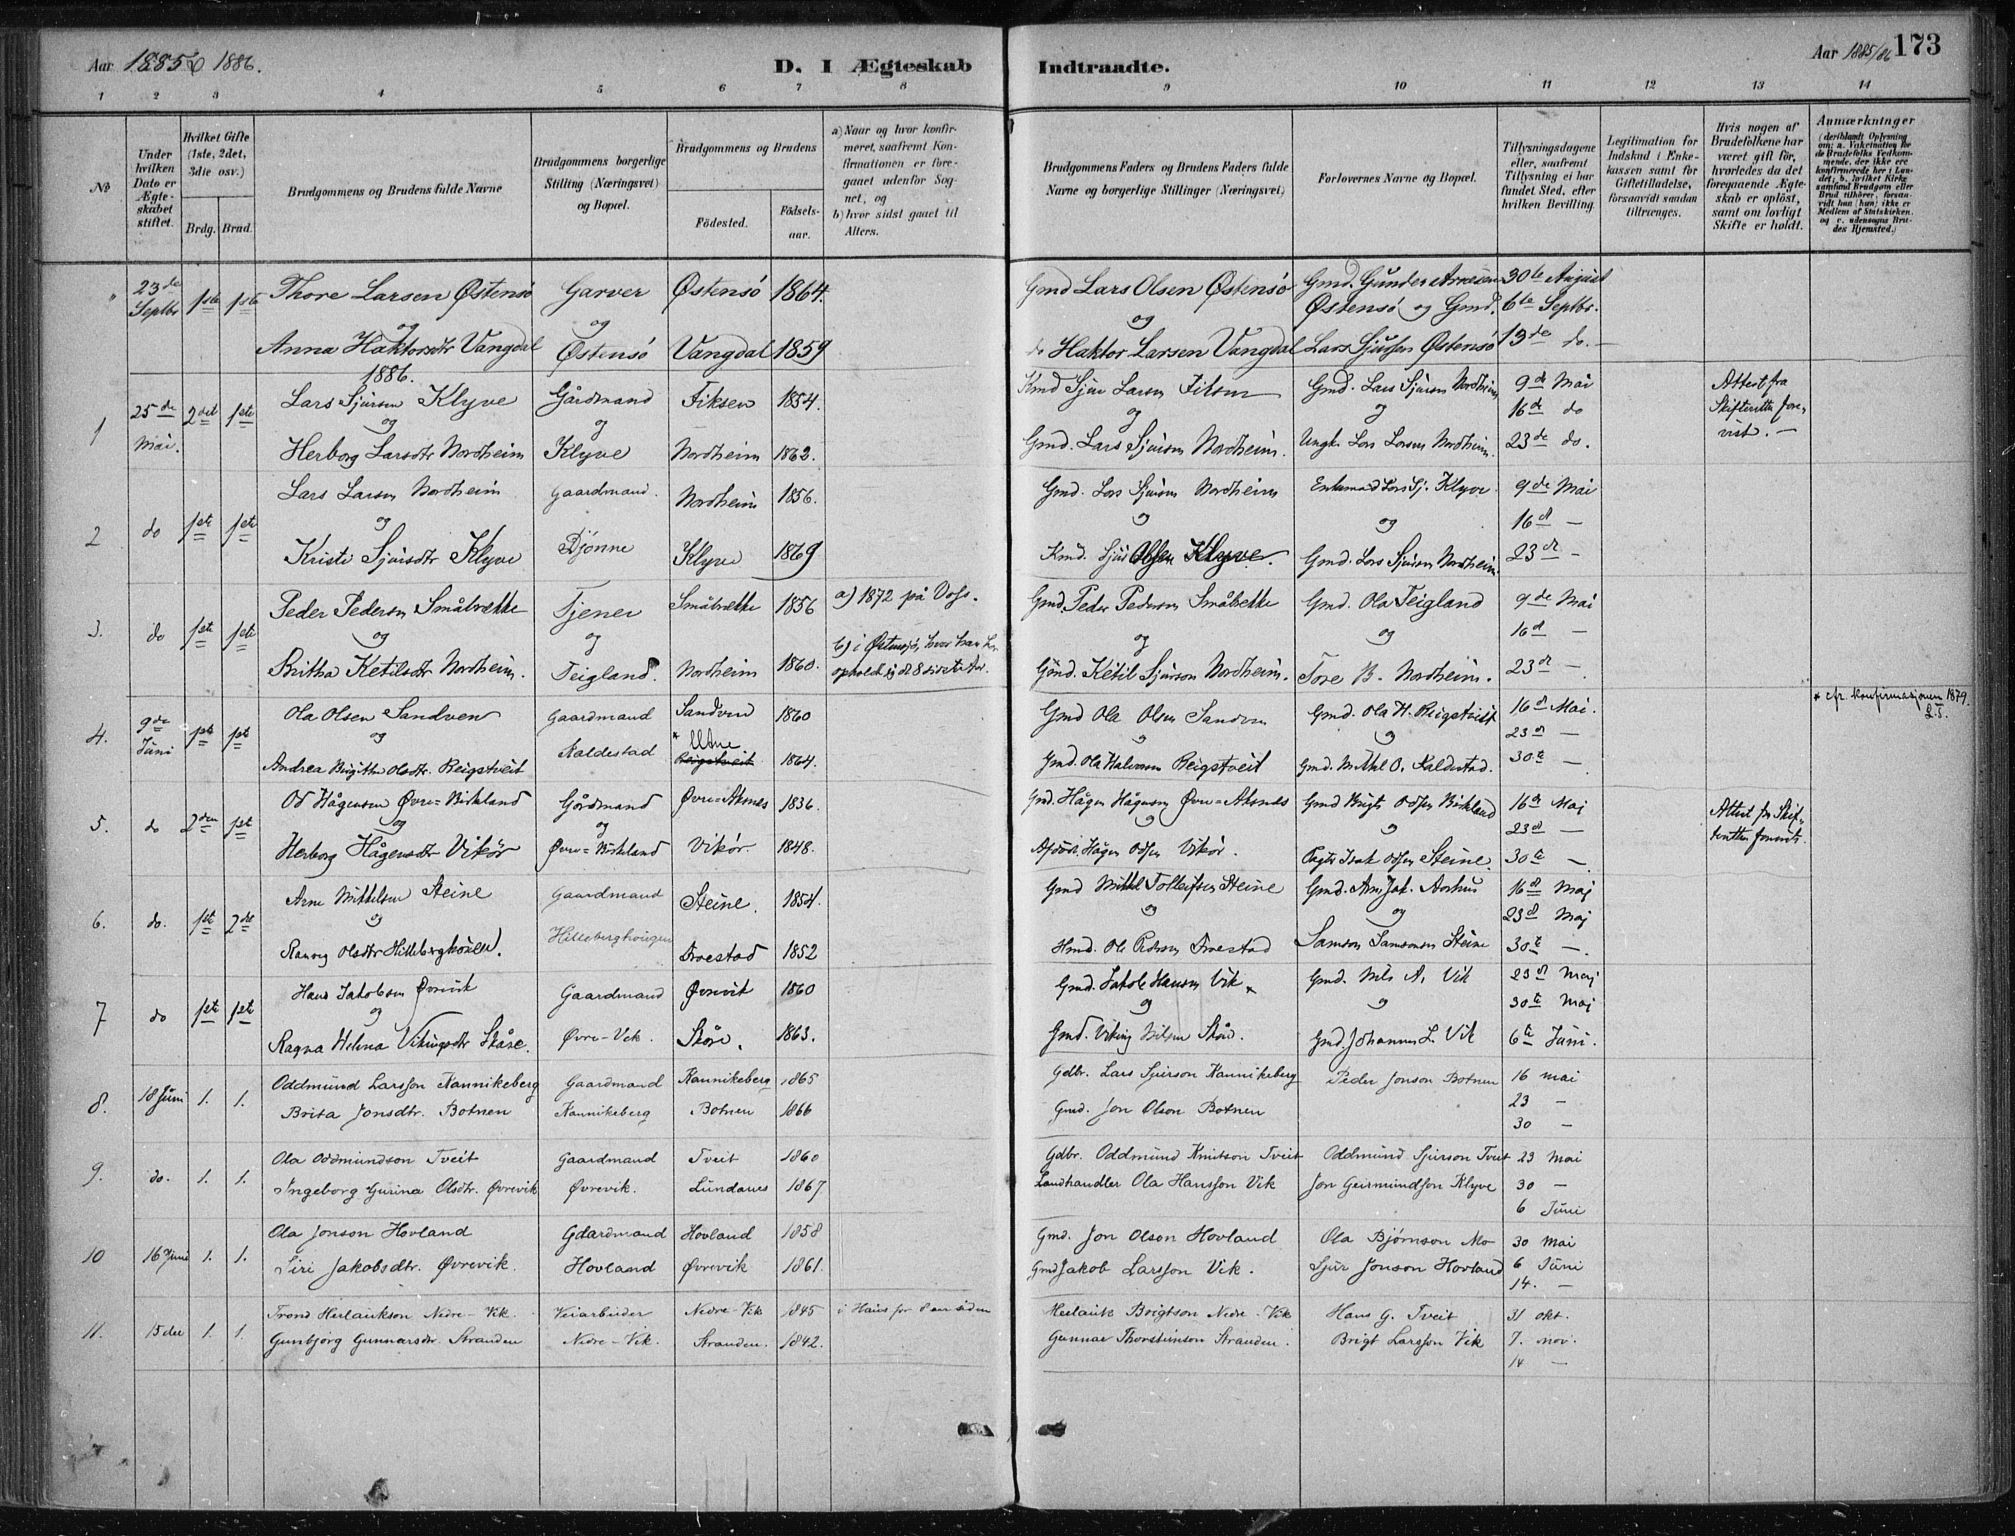 Aar 1885 & 1886.
D. I Ægteskab Indtraadte.
Aar 1885/86 173
1 2 3 4 5 6 7 8 9 10 11 12 13 14
No
Under hvilken Dato er Ægteskabet stiftet.
Hvilket Gifte (1ste, 2det, 3die osv.)
Brdg. Brud.
Brudgommens og Brudens fulde Navne
Brudgommens borgerlige Stilling (Næringsvei) og Bopæl.
Brudgommens og Brudens
Fødested.
Fødselsaar.
a) Naar og hvor konfirmeret, saafremt Konfirmationen er foregaaet udenfor Sognet, og
b) hvor sidst gaaet til Alters.
Brudgommens Faders og Brudens Faders fulde Navne og borgerlige Stillinger (Næringsvei)
Forlovernes Navne og Bopæl.
Tillysningsdagene eller, saafremt Tillysning ei har fundet Sted, efter hvilken Bevilling.
Legitimation for Indskud i Enkekassen samt for Giftetilladelse, forsaavidt saadan tiltrænges.
Hvis nogen af Brudefolkene har været gift før, hvorledes da det foregaaende Ægteskab er opløst, samt om lovligt Skifte er holdt.
Anmærkninger (deriblandt Oplysning om: a. Vakcination for de Brudefolks Vedkommende, der ikke ere konfirmerede her i Landet; b. hvilket Kirkesamfund Brudgom eller Brud tilhører, forsaavidt han (hun) ikke er Medlem af Statskirken, og c. udensogns Brudes Hjemsted.)
" 23de Septbr 1ste 1ste Thore Larsen Østensø Garver Østensø 1864. Gmd Lars Olsen Østensø Gmd. Gunder Arnesen 30te August
og og og Østensø og Gmd. 6te Septbr.
Anna Haktorsdtr Vangdal Østensø Vangdal 1859 do Haktor Larsen Vangdal Lars Sjursen Østensø 13de do. —
1886.
1 25de Mai. 2det 1ste Lars Sjursen Klyve Gårdmand Fiksen 1854. Kmd Sjur Larsen Fiksen Gmd. Lars Sjursen Nordheim 9de Mai Attest fra
og og og og 16de do Skifteretten forevist. —
Herborg Larsdtr Nordheim Klyve Nordheim 1862. Gmd. Lars Sjursen Nordheim. Ungk. Lars Larsen Nordheim. 23de do.
2 do 1ste 1ste Lars Larsen Nordheim Gaardmand. Nordheim 1856. Gmd. Lars Sjursen Nordheim Enkemand Lars Sj. Klyve. 9de Mai
og og og 16d —
Kristi Sjursdtr Klyve Djønne Klyve 1869 Kmd. Sjur Olsen Klyve. Gmd. Lars Sjursen Nordheim 23de —
3. do 1ste 1ste Peder Pedersen Småbrække Tjener Småbrække 1856 a) 1872 på Voss. Gmd. Peder Pedersen Småbrække Gmd. Ola Teigland 9de Mai
og og og og 16d —
Britha Ketilsdtr Nordheim. Teigland. Nordheim 1860. b) i Østensjø, hvor han har opholdt sig de 8 sidste Aar. Gmd. Ketil Sjurson Nordheim. Tore B. Nordheim. 23de —
4. 9de Juni 1ste 1ste Ola Olsen Sandven Gaardmand Sandven 1860 Gmd Ola Olsen Sandven Gmd. Ola H. Reigstveit 16d Mai. * cfr. konfirmasjonen 1879.
og * Utne og og 23d —
Andrea Birgitta Olsdtr. Reigstveit Kaldestad Reigstveit 1864. Gmd. Ola Halvorsen Reigstveit Gmd. Mikkel O. Kaldestad. 30te —
5. do 2den 1ste Od Hågensen Øvre-Birkland Gårdmand Øvre-Aksnes 1836. Gmd. Hågen Hågensen Øvre-Aksnes Gmd Brigt Odsen Birkland 16de Maj Attest fra Skifteretten forevist.
og og og og 23d —
Herborg Hågensdtr Vikør Øvre-Birkland Vikør 1848. Afdøde Hågen Odsen Vikør. Isak Odsen Steine 30te —
6. do. 1ste 2det Arne Mikkelsen Steine Gaardmand Steine. 1854. Gmd Mikkel Tolleifsen Steine Gmd. Arn Jak. Aarhus 16d Maj
og og og 23d Maj
Ranveig Olsdtr Hilleberghougen. Hilleberghougen Froestad 1852 Hmd. Ole Pedersen Froestad Samson Samsonsen Steine 30te —
7 do 1ste 1ste Hans Jakobsen Øvrevik Gaardmand Øvrevik 1860 Gmd. Jakob Hansen Vik Gmd. Nils A. Vik 23d Maj
og og og 30te Maj
Ragna Helena Vikingsdtr Skåre. Øvre-Vik. Skåre. 1863. Gmd. Viking Nilsen Skåre. Gmd. Johannes L. Vik 6te Juni.
8. 18 Juni 1. 1. Oddmund Larsson Kannikeberg Gaardmand Kannikeberg 1865 Gdbr. Lars Sjurson Kannikeberg Peder Jonson Botnen 16 mai
Brita Jonsdtr. Botnen Kannikeberg Botnen 1866 Gmd. Jon Olson Botnen 23 —
30 —
9. do. 1. 1. Ola Oddmundson Tveit Gaardmand Tveit 1860 Gdbr. Oddmund Knutson Tveit Oddmund Sjurson Tveit 23 Mai
Ingeborg Gurina Olsdtr. Øvrevik Øvrevik. Lundanes 1867 Landhandler Ola Hansson Vik Jon Geirmundson Klyve 30 —
6 Juni
10 16 Juni 1. 1. Ola Jonson Hovland Gdaardmand Hovland 1858 Gmd. Jon Olson Hovland Ola Bjørnson Mo 30 Mai
Siri Jakobsdtr. Øvrevik. Hovland Øvrevik 1861. Gmd Jakob Larsson Vik. Sjur Jonson Hovland 6 Juni
14. —
11. 15 des 1. 1. Trond Herlaukson Nedre-Vik. Veiarbeider Nedre-Vik 1845 i Haus for 8 aar siden Herlauk Brigtson Nedre-Vik Hans G. Tveit 31 okt.
Gunbjørg Gunnarsdr. Stranden Nedre-Vik. Stranden. 1842. Gunnar Thorsteinson Stranden. Brigt Larsson Vik 7. nov.
14 —